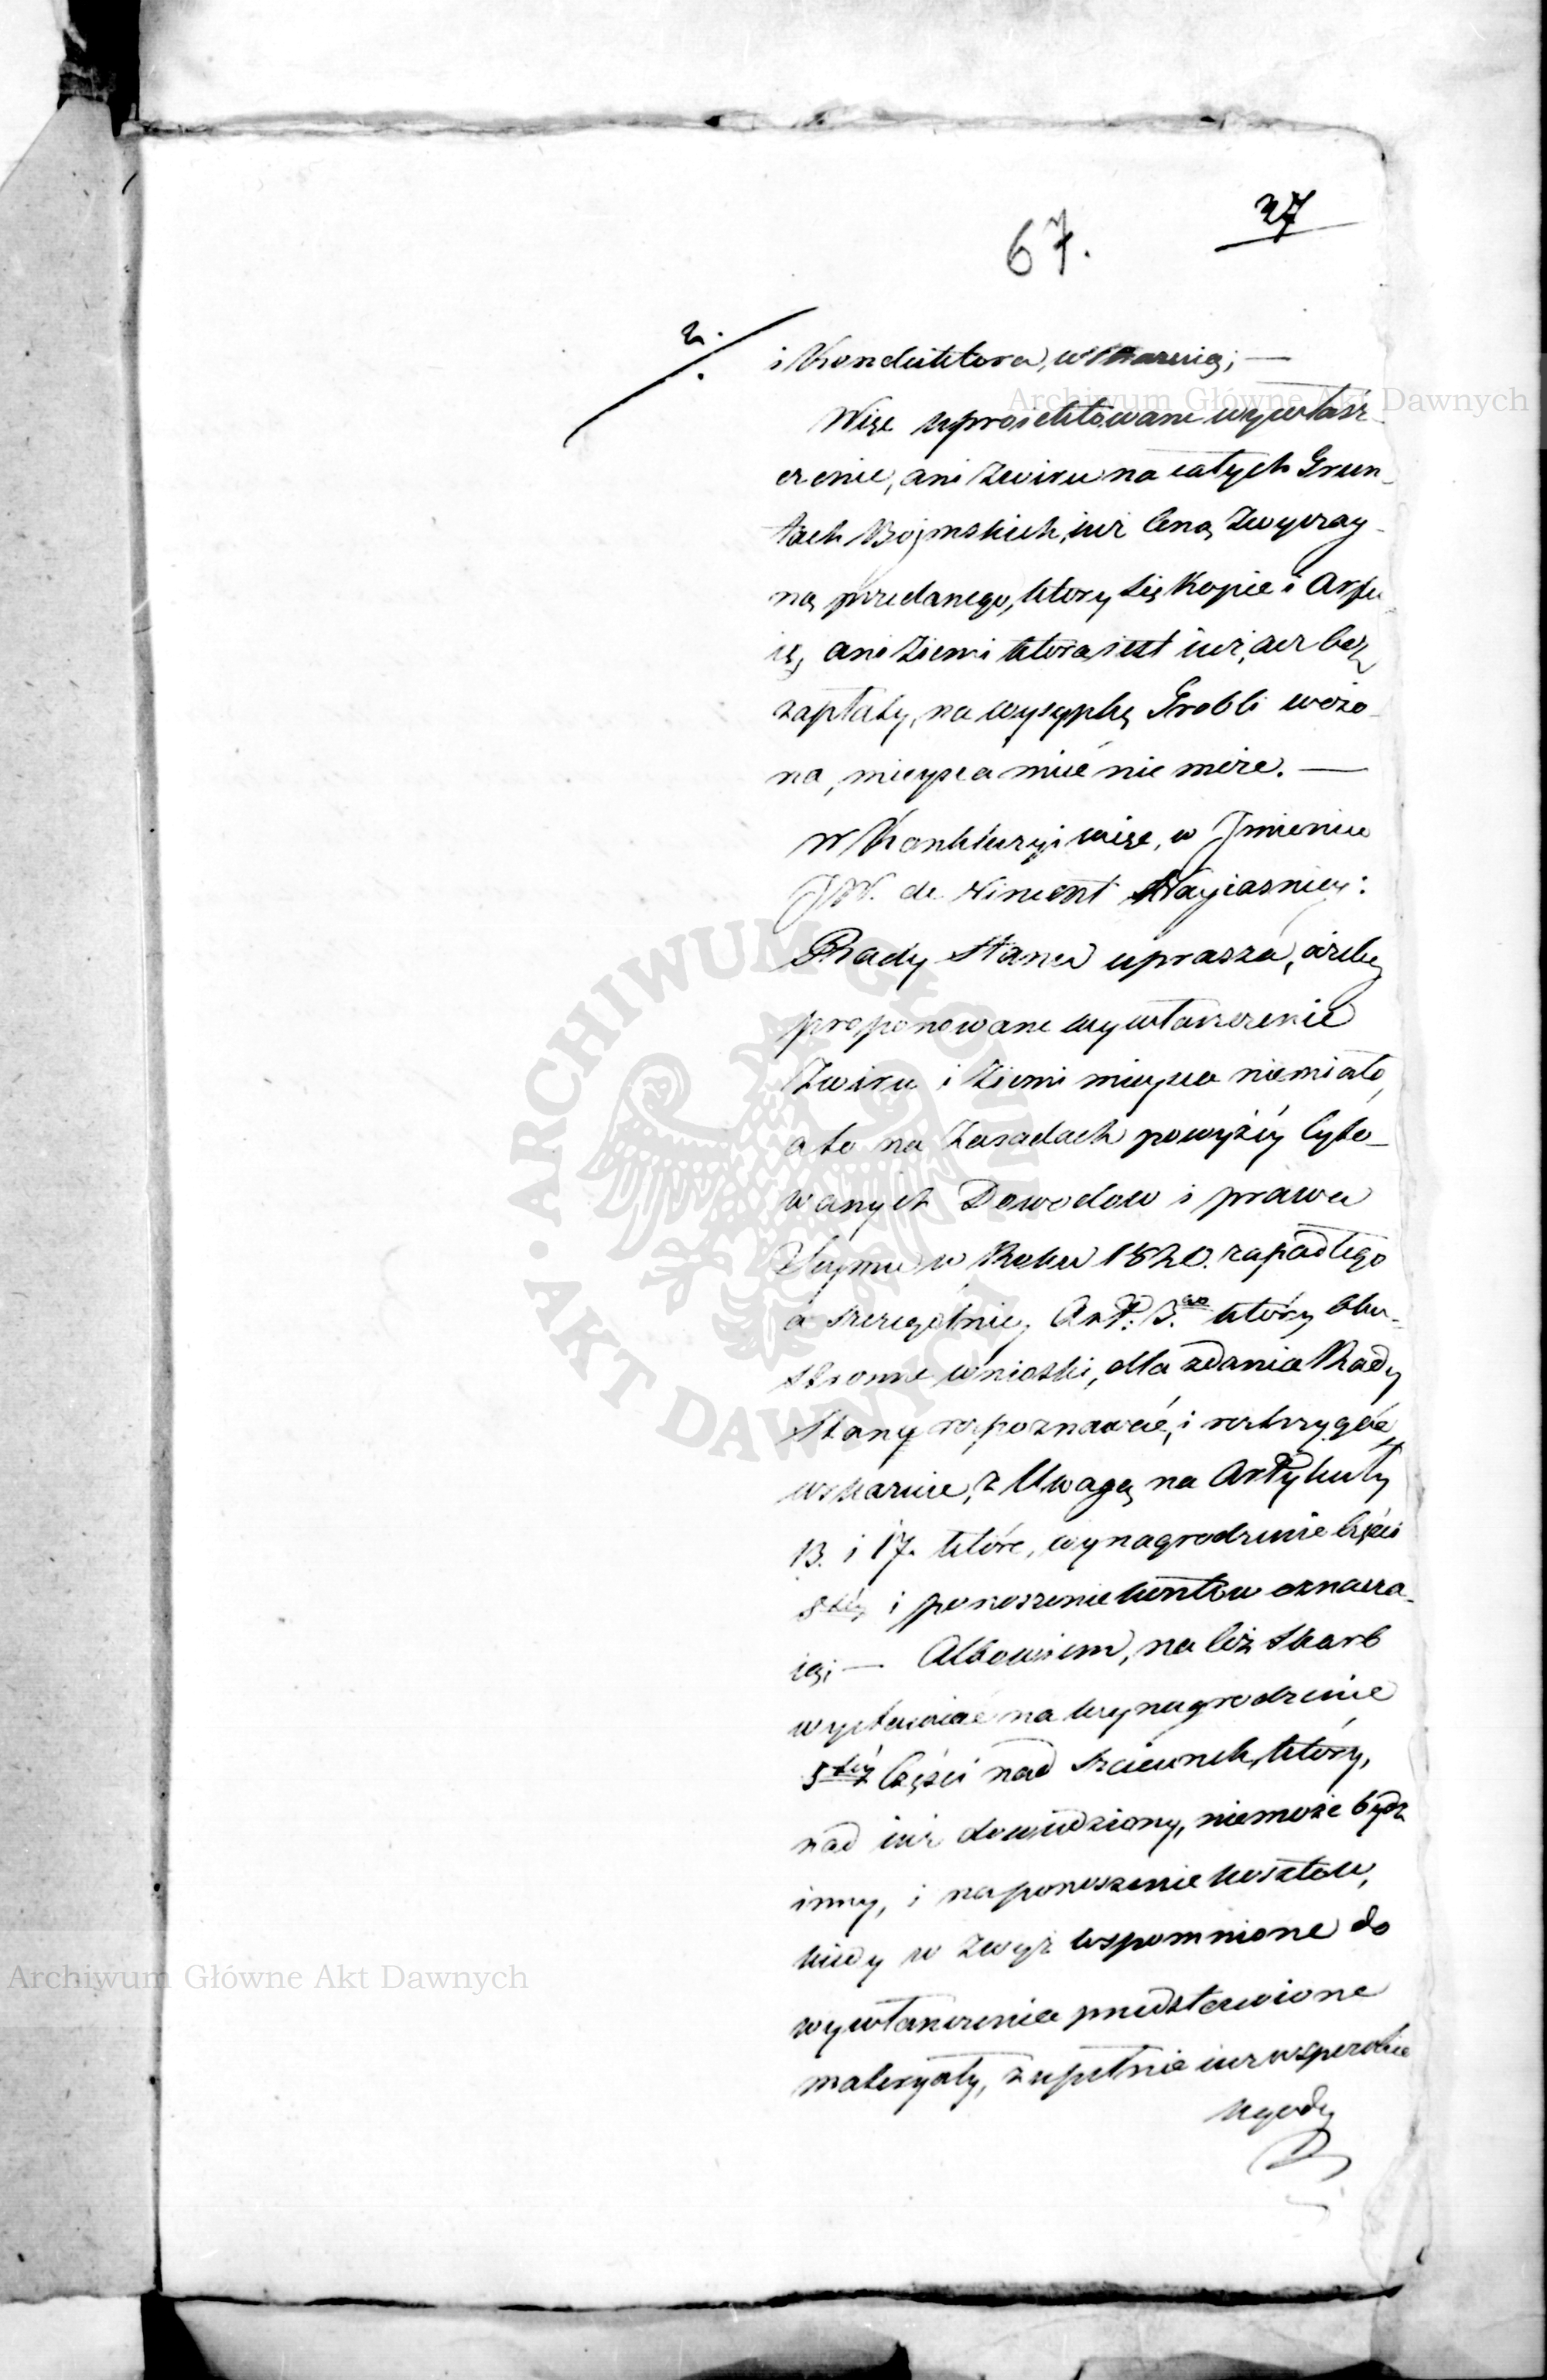 27
67.
2.
i Konduktora, wskazuią; —
Więc uproiektowane wywłasz-
czenie, ani żwiru na całych Grun-
tach Boymskich, iuż Ceną zwyczay-
ną przedanego, który się Kopie i Arfu-
ie, ani ziemi która iest iuż, acz bez
zapłaty, na wysypkę Grobli wożo-
na, mieysca mieć nie może. —
W Konkluzyi więc, w Jmieniu
JW. de Vincent Nayiaśniey:
Rady Stanu uprasza, ażeby
proponowane wywłaszczenie
Żwiru i Ziemi mieysca niemiało,
a to na Zasadach powyżéy Cyto-
wanych Dowodow i prawa
Seymu w Roku 1820. zapadłego
a szczególniey Art: 3.go który obu-
stronne wnioski, dla zdania Rady
Stanu rozpoznawać, i roztrzygać
wskazuie, z Uwagą na Artykuły
13. i 17. które, wynagrodzenie Części
5téy i ponoszenie kosztów oznacza-
ią; — Albowiem, na cóż Skarb
wystawiać na wynagrodzenie
5téy Części nad Szacunek, który,
nad iuż dowiedziony, niemoże bydź
inny, i na ponoszenie kosztów,
kiedy w zwyż wspomnione do
wywłaszczenia przedstawione
materyały, zupełnie iuż w sposobie
ugody
Archiwum Główne Akt Dawnych
Archiwum Główne Akt Dawnych
ARCHIWUM GŁÓWNE AKT DAWNYCH